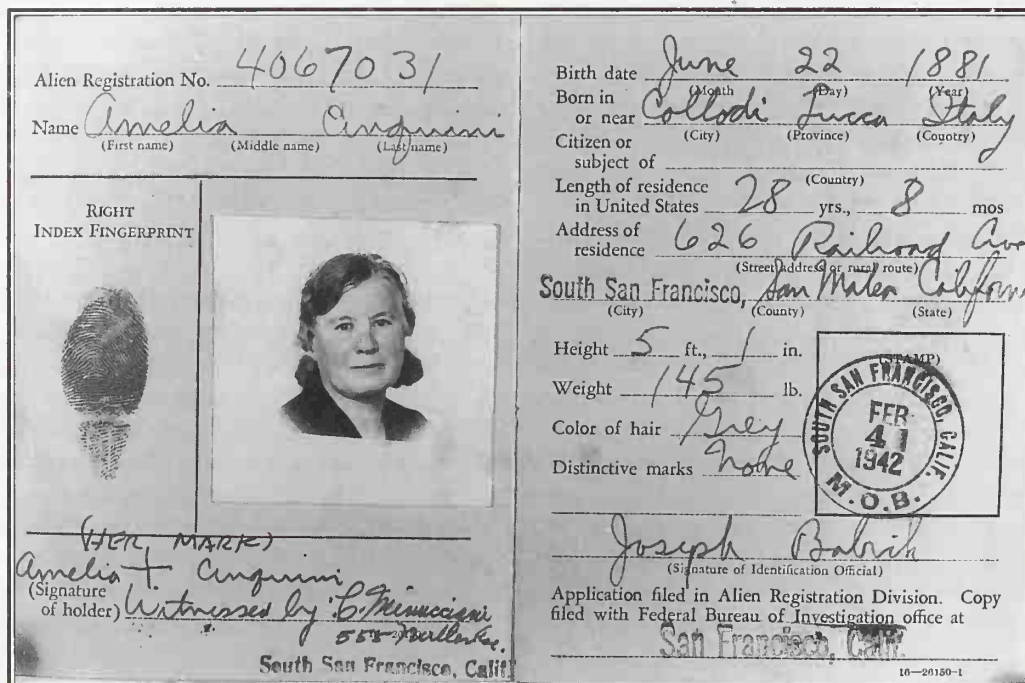 Alien Registration No. 4067031
Name Amelia Cinquini
(First name) (Middle name) (Last name)
RIGHT
INDEX FINGERPRINT
(HER MARK)
Amelia + Cinquini
(Signature
of holder) Witnessed by
South San Francisco, Calif.
Birth date June 22 1881
(Month (Day) (Year)
Born in
or near Collodi Lucca Italy
(City) (Province) (Country)
Citizen or
subject of
(Country)
Length of residence
in United States 28 yrs., 8 mos
Address of
residence 626 Railroad Ave
(Street address or rural route)
South San Francisco, San Mateo California
(City) (County) (State)
Height 5 ft., 1 in.
Weight 145 lb.
Color of hair Grey
Distinctive marks None
(STAMP)
SOUTH SAN FRANCISCO, CALIF.
FEB
1942
M.O.B.
Joseph
(Signature of Identification Official)
Application filed in Alien Registration Division. Copy
filed with Federal Bureau of Investigation office at
San Francisco, Calif.
16—26150-1